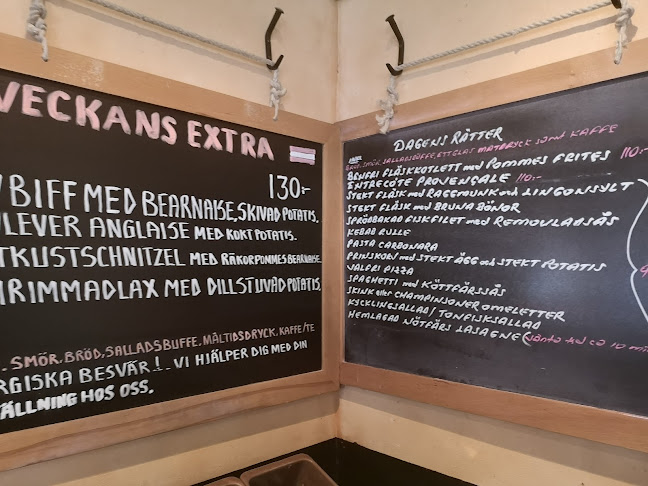 VECKANS EXTRA
130:-
BIFF MED BEARNAISE, SKIVAD POTATIS.
LEVER ANGLAISE MED KOKT POTATIS.
TKUSTSCHNITZEL MED RÄKOR POMMES BEARNAISE.
RIMMADLAX MED DILLSTUVAD POTATIS,
SMÖR, BRÖD, SALLADSBUFFE, MÅLTIDSDRYCK, KAFFE/TE
RGISKA BESVÄR!.. VI HJÄLPER DIG MED DIN
ÄLLNING HOS OSS.
DAGENS RÄTTER
SMÖR, SALLADSBUFFE, ETT GLAS MATDRYCK SAMT KAFFE
BENFRI FLÄSKKOTLETT med POMMES FRITES 110:-
ENTRECÔTE PROVENÇALE 110:-
STEKT FLÄSK med RAGGMUNK och LINGONSYLT
STEKT FLÄSK med BRUNA BÖNOR
SPRÖDBAKAD FISKFILET med REMOULADSÅS
KEBAB RULLE
PASTA CARBONARA
PRINSKORV med STEKT ÄGG och STEKT POTATIS
VALFRI PIZZA
SPAGHETTI med KÖTTFÄRSSÅS
SKINK eller CHAMPINJONER OMELETTER
KYCKLINGSALLAD/ TONFISKSALLAD
HEMLAGAD NÖTFÄRS LASAGNE (vänta tid ca 10 min